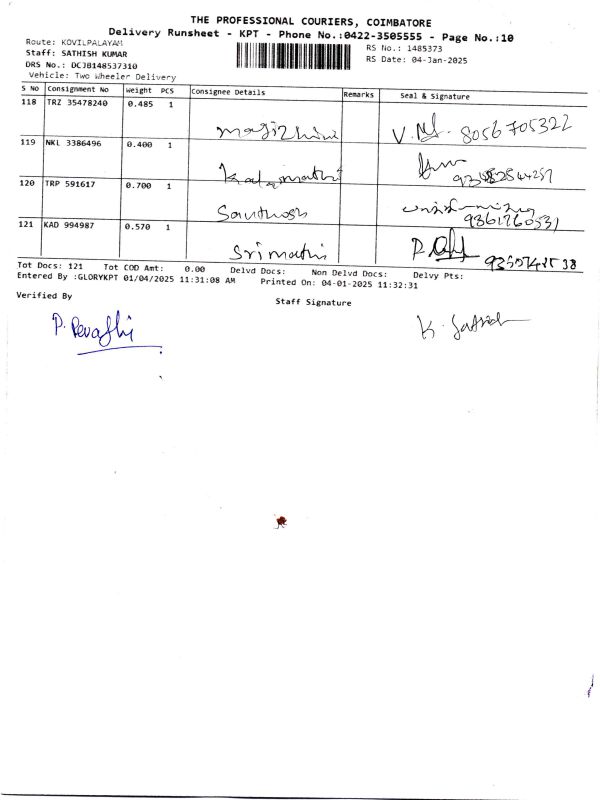 THE PROFESSIONAL COURIERS, COIMBATORE
Delivery Runsheet - KPT - Phone No.:0422-3505555 - Page No.:10
Route: KOVILPALAYAM
RS No.: 1485373
Staff: SATHISH KUMAR
RS Date: 04-Jan-2025
DRS No.: DCJB148537310
Vehicle: Two Wheeler Delivery
S No Consignment No Weight PCS Consignee Details Remarks Seal & Signature
118 TRZ 35478240 0.485 1
magizhini V. 8056705322
119 NKL 3386496 0.400 1
Kalamathi
120 TRP 591617 0.700 1
Santhosh 9361760531
121 KAD 994987 0.570 1
Srimathi P.
Tot Docs: 121 Tot COD Amt: 0.00 Delvd Docs: Non Delvd Docs: Delvy Pts:
Entered By :GLORYKPT 01/04/2025 11:31:08 AM Printed On: 04-01-2025 11:32:31
Verified By
Staff Signature
P. Revathi K. Sathish